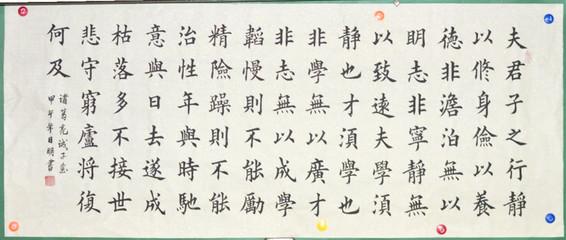 夫君子之行靜
以修身儉以養
德非澹泊無以
明志非寧靜無
以致遠夫學須
靜也才須學也
非學無以廣才
非志無以成學
韜慢則不能勵
精險躁則不能
治性年與時馳
意與日去遂成
枯落多不接世
悲守窮廬將復
何及
諸葛亮誡子書
甲午年日明書